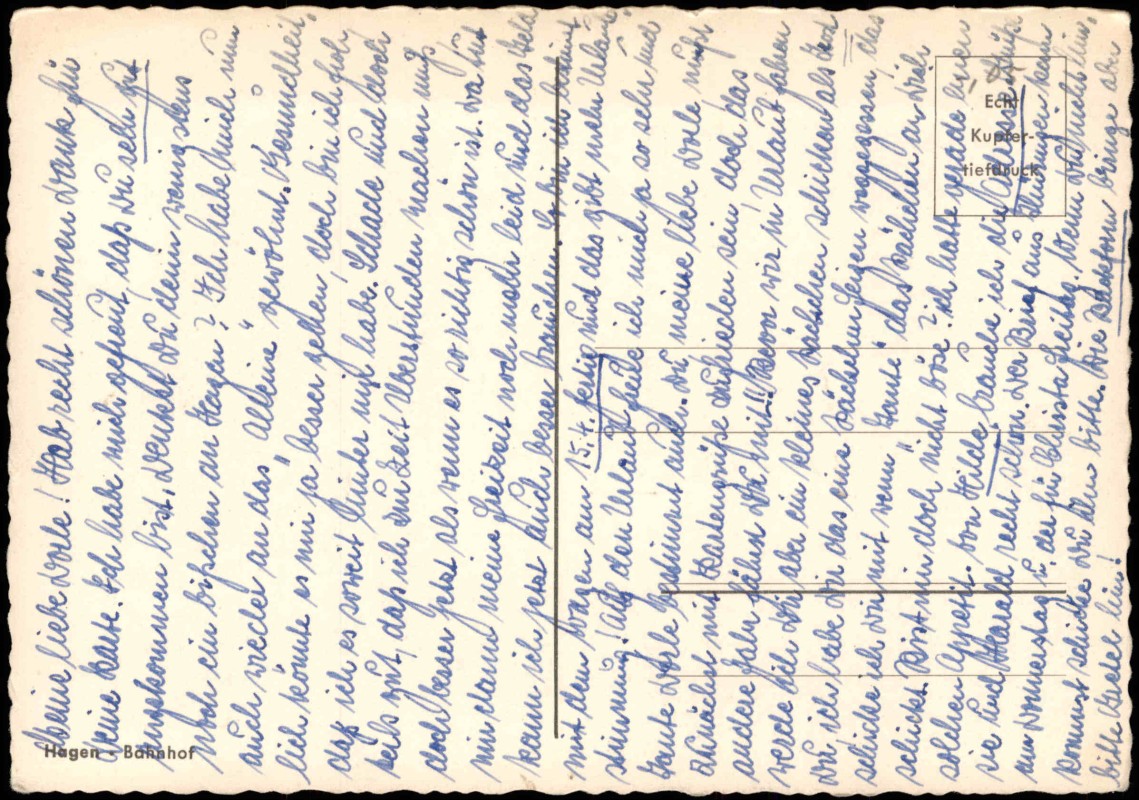 Meine liebe Dorle! Hab recht schönen Dank für
Deine Karte. Ich habe mich gefreut, daß Du sehr gut
angekommen bist. Denkst Du denn wenigstens
noch ein bißchen an Hagen? Ich habe mich nun
auch wieder an das "Allein" gewöhnt. Gesundheit-
lich könnte es mir ja besser gehen, doch bin ich froh,
daß ich es soweit hinter mir habe. Schade und doch
teils gut, daß ich zur Zeit Überstunden machen muß
doch besser jetzt als wenn es so richtig schön ist. Da tut
mir dann meine Freizeit noch mehr leid und das Geld
kann ich jetzt auch besser brauchen. Ich bin dann
mit dem Wagen am 15.4. fertig und das gibt mir den Urlaub
Stimmung! Auf den Urlaub freue ich mich ja so sehr und
Tante Dorle bestimmt auch. Du meine liebe Dorle mußt
zunächst mit Kartengrüße zufrieden sein, doch das
andere Jahr fährst Du mit! Wenn wir in Urlaub fahren
werde ich Dir aber ein kleines Päckchen schicken als Trost
Du ich habe Dir das eine Päckchen Feigen vergessen, das
schicke ich Dir mit wenn Tante das Päckchen an Dich
schickt. Bist mir doch nicht böse? Ich hatte gerade einen
solchen Appetit. Von Hilde brauche ich die Adresse
sie und Harald recht schön. Der Brief aus Thüringen kam
am Donnerstag u. der für Christa Freitag. Wenn Du mir ein-
kommst schickst Du ihn bitte. Die bringe aber
bitte Gerda hin!
Hagen - Bahnhof
Echt
Kupfer-
tiefdruck